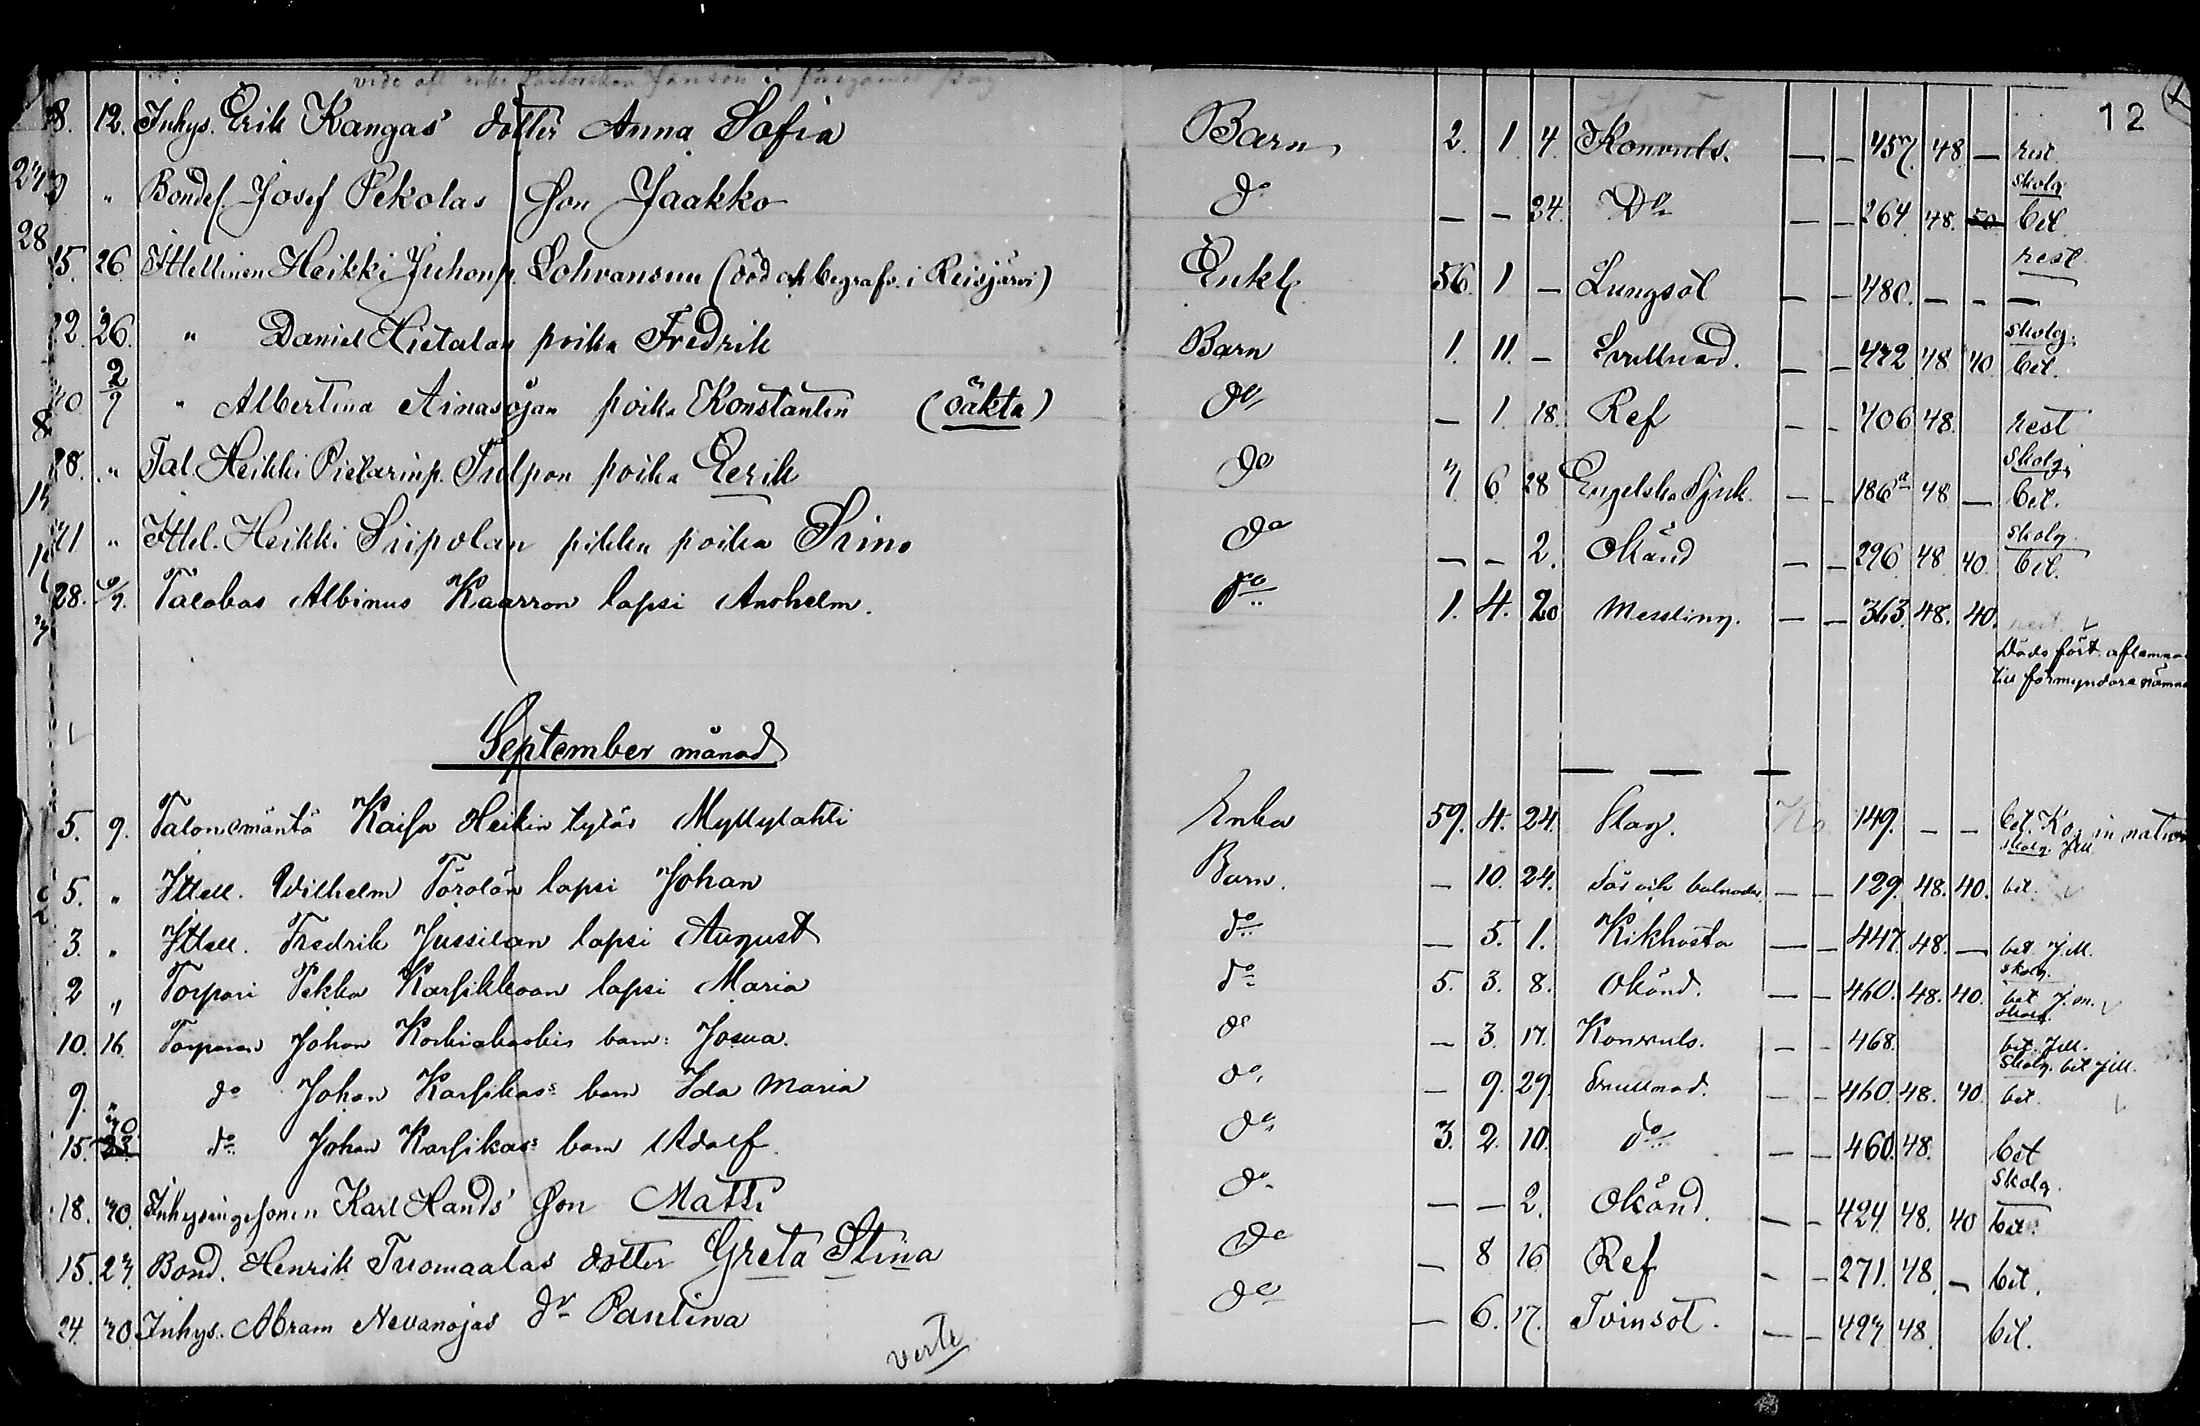 12
8. 12. Inhys. Erik Kangas' dotter Anna Sofia Barn 2. 1. 4. Konvuls. — — 457. 48 — rest.
" Bondes. Josef Pekolas Son Jaakko do — — 24. Do — — 264. 48. 50 skolg. bet.
15. 26. Ittellinen Heikki Juhonp. Lohvansuu (död och begrafv. i Reisjärvi) Enkl. 56. 1 — Lungsot — — 480. — — rest —
22. 26. " Daniel Hietalan poika Fredrik Barn 1. 11. — Svullnad. — — 472 48 40 skolg. bet.
" Albertina Ainasojan poika Konstantin (oäkta) do — 1. 18. Ref — — 406 48. rest
28. " Tal. Heikki Pietarinp. Tulpon poika Eerik do 7 6 28 Engelska Sjuk. — — 186 a 48 — skolg. bet.
" Ittel. Heikki Siipolan pikku poika do — — 2. Okänd — — 296 48 40. skolg. bet.
28. Albinus Kaarron lapsi Anshelm. do 1. 4. 20 Messling. — — 363. 48. 40. rest.
Döds fört. aflemnad
till förmyndare nämnd
September månad
5. 9. Talonemäntä Kaisa Heikin tytär Myllylahti Enka 59. 4. 24. Slag. Ko 149. — — bet. Ko in natura
skolg. JM
5. " Ittell. Wilhelm Törölän lapsi Johan Barn. — 10. 24. Sår och bulnader. — — 129. 48. 40. bet.
3. " Ittell. Fredrik Jussilan lapsi August do — 5. 1. Kikhosta — — 447. 48. — bet. JM.
2 " Torpari Pekka Karsikkoan lapsi Maria do 5. 3. 8. Okänd. — — 460. 48. 40. skolg. bet J.M.
10. 16. Torparen Johan barn: Josua. do — 3. 17. Konvuls. — — 468. skolg. bet. JM.
9. " do Johan Karsikas: barn Ida Maria do — 9. 29. Svullnad. — — 460. 48. 40. Skolg. bet JM. bet.
15. 23. do Johan Karsikas: barn Adolf. do 3. 2. 10. do — — 460. 48. bet
18. 30. Inhysingesonen Karl Hands' Son Matti do — — 2. Okänd. — — 424. 48. 40 Skolg. bet.
15. 23. Bond. Henrik Tuomaalas dotter Greta Stina do — 8 16 Ref — — 271. 48. — bet.
24. 30. Inhys. Abram Nevanojas dr Paulina do — 6. 17. Tvinsot. — — 493 48. bet.
verte